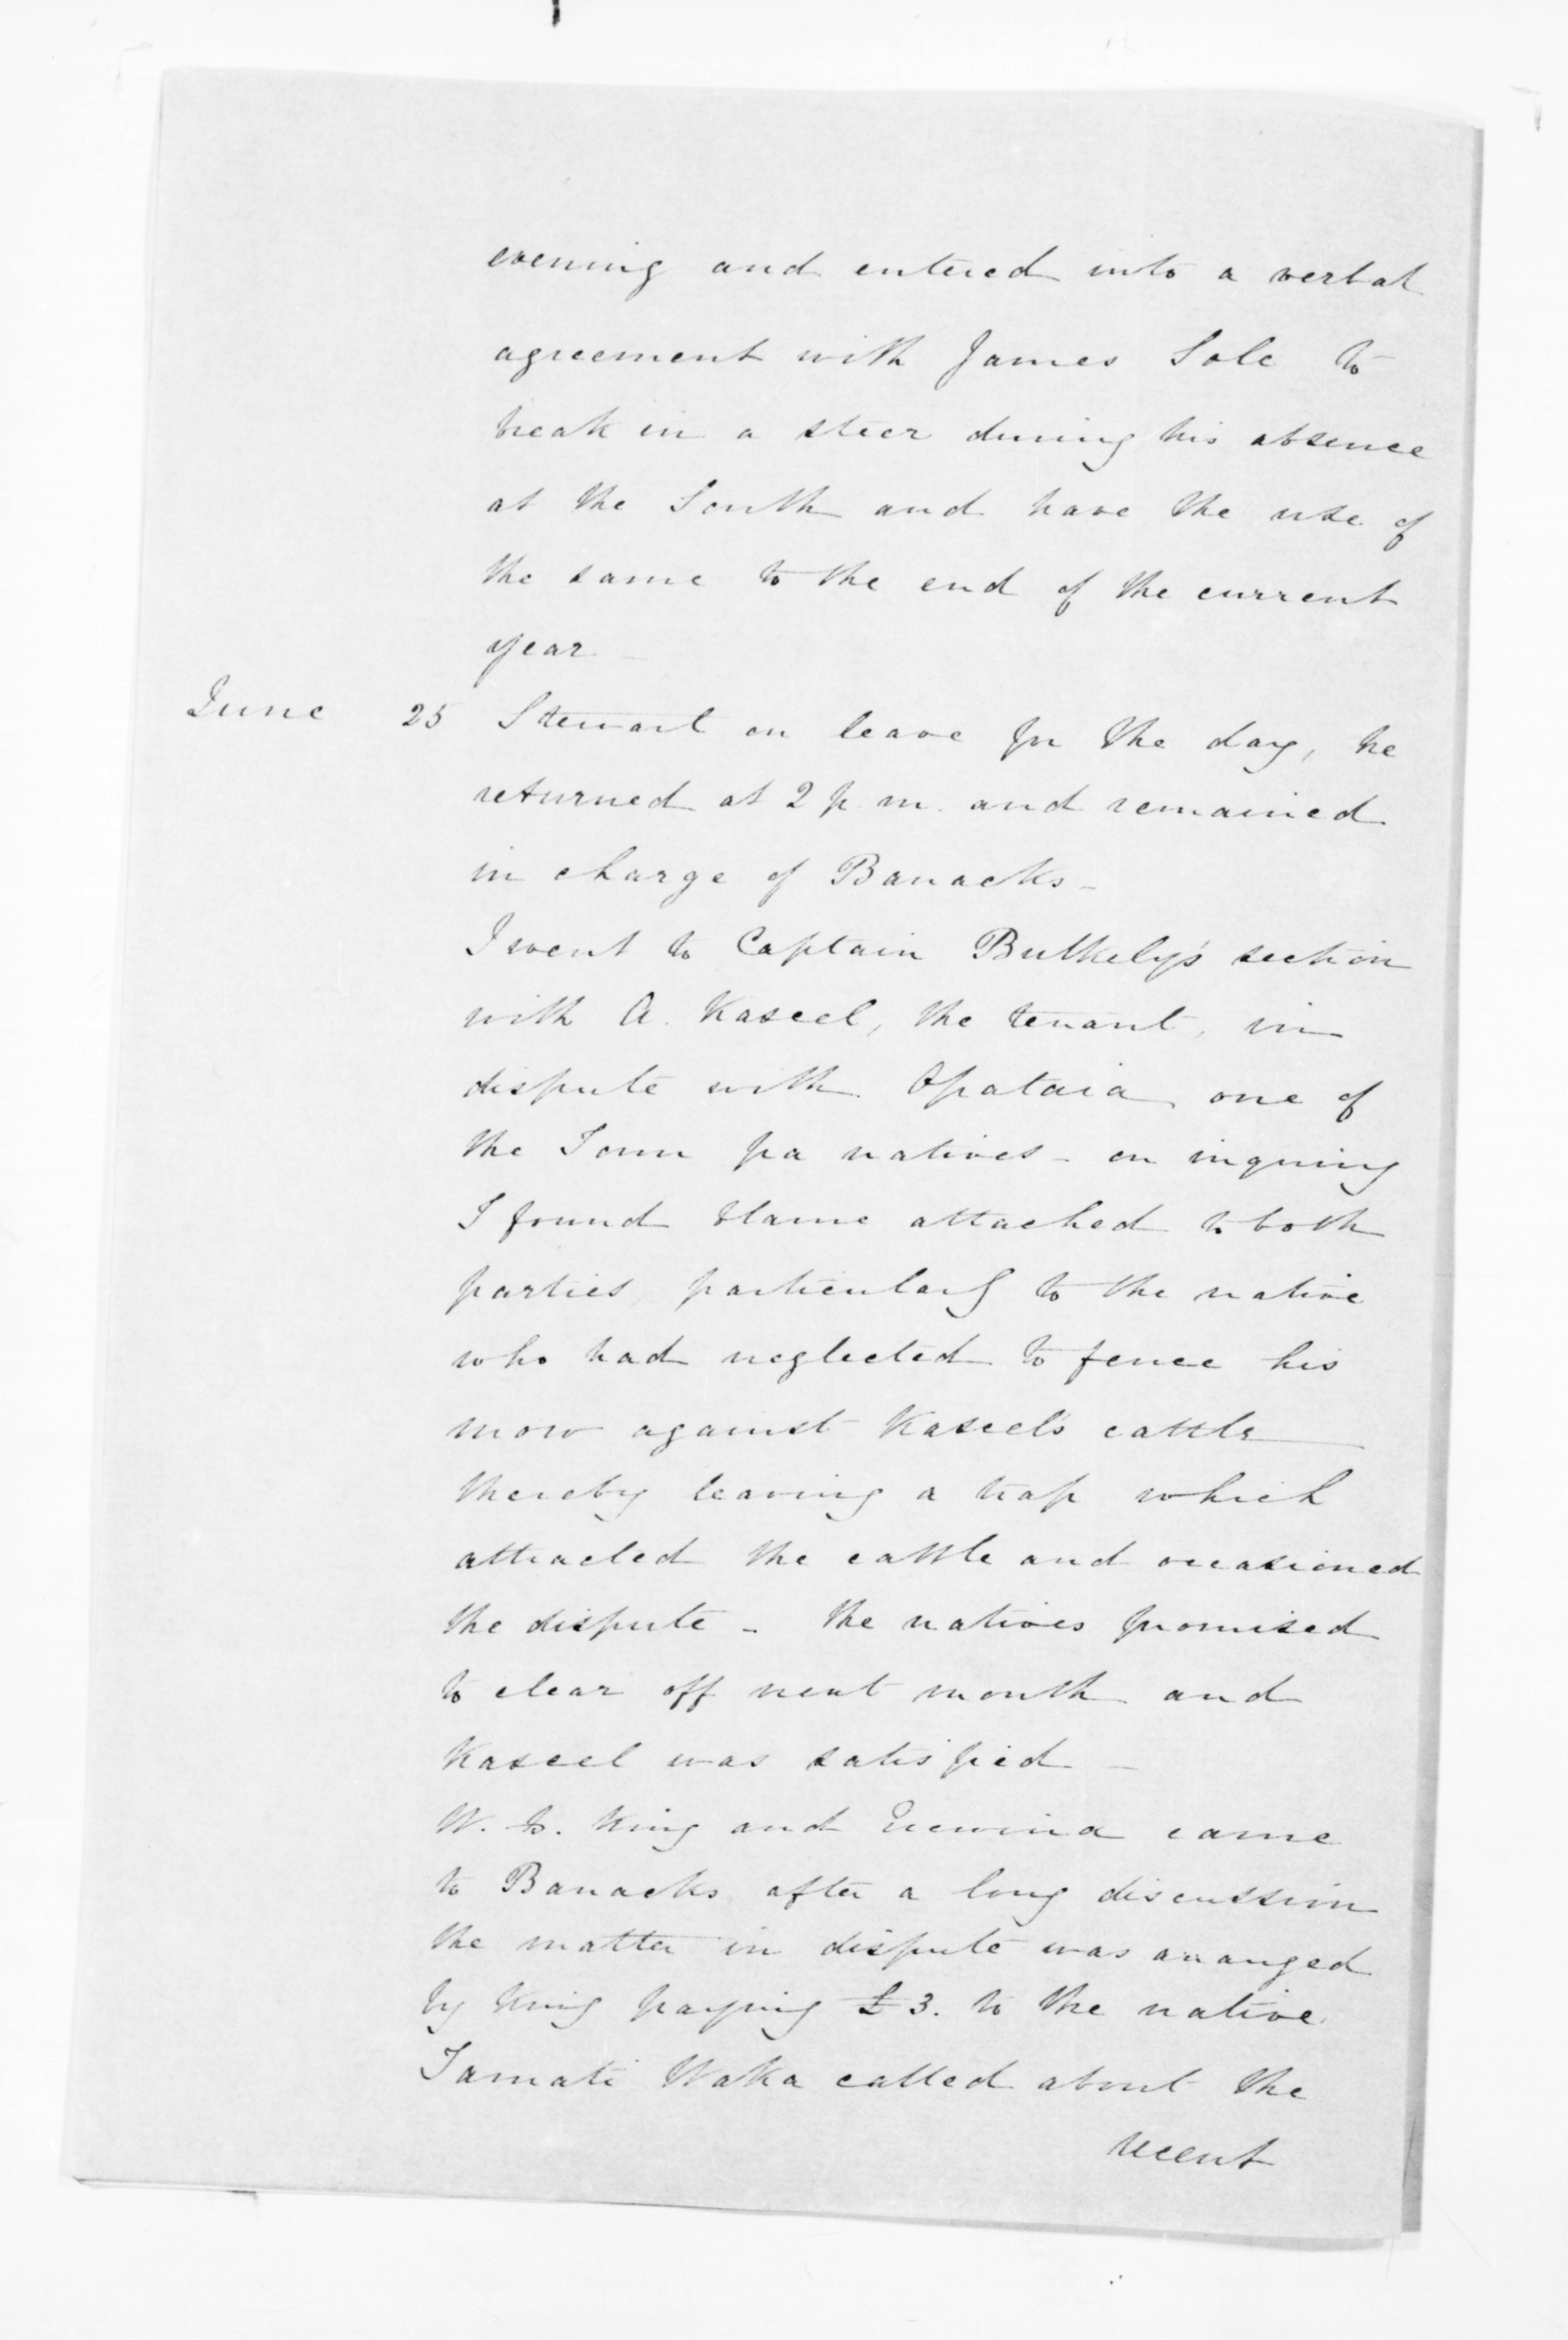 evening and entered into a verbal
agreement with James Sole to
break in a steer during his absence
at the South and have the use of
the same to the end of the current
year —
June 25 Stewart on leave for the day, he
returned at 2 p.m. and remained
in charge of Barracks —
I went to Captain Bulkely's section
with A. Kaseel, the tenant, in
dispute with Opataia one of
the Town pa natives — on inquiring
I found blame attached to both
parties particularly to the native
who had neglected to fence his
mow against Kaseel's cattle
thereby leaving a trap which
attracted the cattle and occasioned
the dispute — the natives promised
to clear off next month and
Kaseel was satisfied —
W. King and came
to Barracks, after a long discussion
the matter in dispute was arranged
by King paying £3. to the native.
Tamati Waka called about the
recent